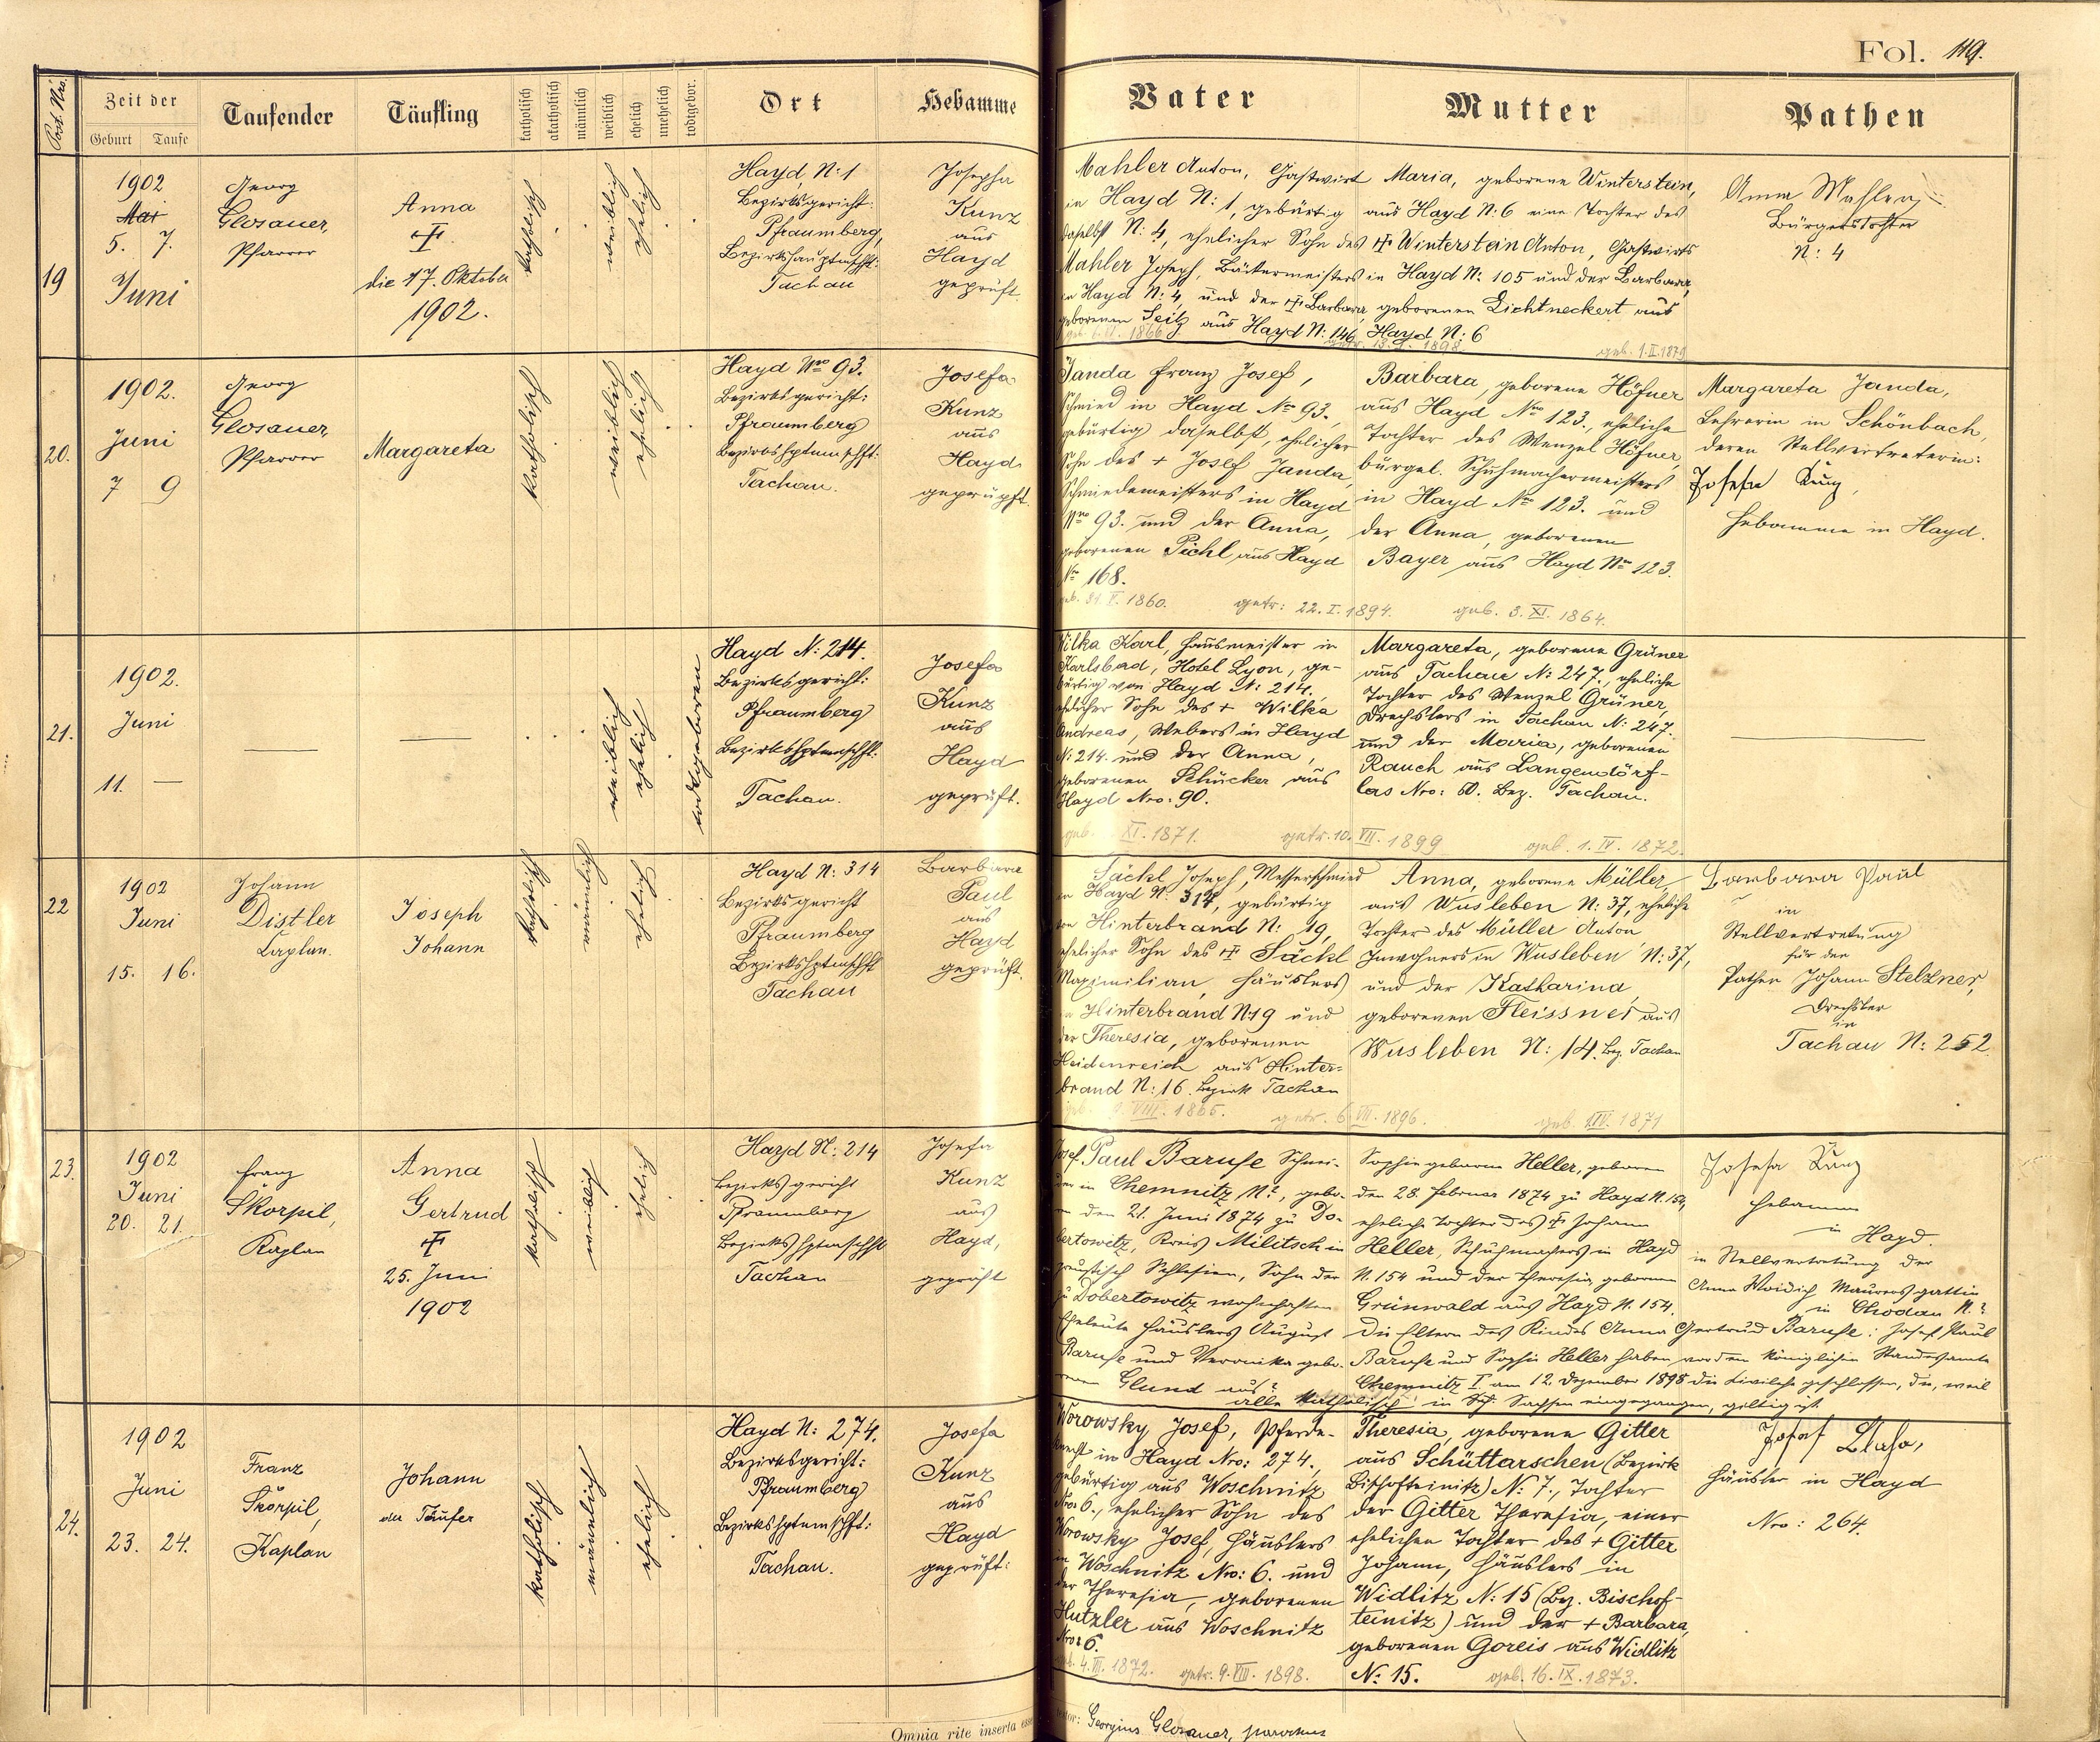 Fol. 119.
Post. Nro.
Zeit der
Geburt
Taufe
Taufender
Täufling
katholisch
akatholisch
männlich
weiblich
ehelich
unehelich
todtgebor.
Ort
Hebamme
Vater
Mutter
Pathen
19
1902
Mai
5. 7.
Juni
Georg
Glosauer,
Pfarrer
Anna
die 17. Oktober
1902.
katholisch
weiblich
ehelich
Hayd, N: 1
Bezirksgericht:
Pfraumberg,
Bezirkshauptmschft:
Tachau
Josepha
Kunz
aus
Hayd
geprüft.
Mahler Anton, Gastwirt
in Hayd N: 1, gebürtig
daselbst N: 4, ehelicher Sohn des
Mahler Joseph, Bäckermeisters
in Hayd N: 4, und der Barbara,
geborenen Seitz aus Hayd N: 146
1866
getr. 1898.
Maria, geborene Winterstein,
aus Hayd N: 6 eine Tochter des
Winterstein Anton, Gastwirts
in Hayd N: 105 und der Barbara,
geborenen Lichtneckert aus
Hayd N: 6
geb. 1.II.1879
Anna Mahler,
Bürgerstochter
N: 4
20.
1902.
Juni
7 9
Georg
Glosauer,
Pfarrer
Margareta
katholisch
weiblich
ehelich
Hayd Nro 93.
Bezirksgericht:
Pfraumberg
Bezirkshptmschft:
Tachau.
Josefa
Kunz
aus
Hayd
geprüft.
Janda Franz Josef,
Schmied in Hayd No 93,
gebürtig daselbst, ehelicher
Sohn des + Josef Janda,
Schmiedemeisters in Hayd
Nro 93. und der Anna,
geborenen Pichl aus Hayd
No 168.
geb. 31. V. 1860.
getr: 22. I. 1894.
Barbara, geborene Höfner
aus Hayd Nro 123., eheliche
Tochter des Wenzel Höfner,
bürgel. Schuhmachermeisters
in Hayd Nro 123. und
der Anna, geborenen
Bayer aus Hayd Nro 123.
geb. 3. XI. 1864.
Margareta Janda,
Lehrerin in Schönbach,
deren Stellvertreterin:
Josefa Kunz,
Hebamme in Hayd.
21.
1902.
Juni
11. —
weiblich
ehelich
todtgeboren
Hayd N: 214.
Bezirksgericht:
Pfraumberg
Bezirkshptmschft:
Tachau.
Josefa
Kunz
aus
Hayd
geprüft.
Wilka Karl, Hausmeister in
Karlsbad, Hotel Lyon, ge-
bürtig von Hayd N: 214.,
ehelicher Sohn des + Wilka
Andreas, Webers in Hayd
N: 214. und der Anna,
geborenen Schücker aus
Hayd Nro: 90.
geb. XI. 1871.
getr. 10. VII. 1899
Margareta, geborene Grüner
aus Tachau N: 247., eheliche
Tochter des Wenzel Grüner,
Drechslers in Tachau N: 247.
und der Maria, geborenen
Rauch aus Langendörf-
las Nro: 60. Bez. Tachau.
geb. 1. IV. 1872.
22
1902
Juni
15. 16.
Johann
Distler
Kaplan.
Joseph
Johann
katholisch
männlich
ehelich
Hayd N: 314
Bezirksgericht
Pfraumberg
Bezirkshptmschft
Tachau
Barbara
Paul
aus
Hayd
geprüft.
Säckl Joseph, Messerschmied
in Hayd N: 314, gebürtig
von Hinterbrand N: 19,
ehelicher Sohn des Säckl
Maximilian, Häuslers
in Hinterbrand N: 19 und
der Theresia, geborenen
Heidenreich aus Hinter-
brand N: 16. Bezirk Tachau
VIII. 1865.
getr. 6. VII. 1896.
Anna, geborene Müller,
aus Wusleben N: 37, eheliche
Tochter des Müller Anton
Inwohners in Wusleben N: 37,
und der Katharina,
geborenen Fleissner aus
Wusleben N: 14. Bez. Tachau
geb. 1871
Barbara Paul
in
Stellvertretung
für den
Pathen Johann Stelzner,
Drechsler
in
Tachau N: 252.
23.
1902
Juni
20. 21.
Franz
Skorpil,
Kaplan
Anna
Gertrud
25. Juni
1902
katholisch
weiblich
ehelich
Hayd N: 214
Bezirksgericht
Pfraumberg
Bezirkshptmschft
Tachau
Josefa
Kunz
aus
Hayd,
geprüft
Josef Paul Baruse Schnei-
der in Chemnitz N?, gebo-
ren den 21. Juni 1874 zu Do-
bertowitz, Kreis Militsch in
preußisch Schlesien, Sohn der
zu Dobertowitz wohnhaften
Eheleute Häuslers August
Baruse und Veronika gebo-
renen Glund aus?
Sophie geborene Heller, geboren
den 28. Februar 1874 zu Hayd N. 154,
eheliche Tochter des Johann
Heller, Schuhmachers in Hayd
N. 154 und der Theresia geborenen
Grünwald aus Hayd N. 154.
Die Eltern des Kindes Anna Gertrud Baruse: Josef Paul
Baruse und Sophie Heller haben vor dem königlichen Standesamte
Chemnitz I am 12. Dezember 1898 die Civilehe geschlossen, die, weil
alle katholisch in Sachsen eingegangen, giltig ist.
Josefa Kunz
Hebamme
in Hayd.
in Stellvertretung der
Anna Woidich Maurersgattin
in Chodau N.?
24.
1902
Juni
23. 24.
Franz
Škorpil,
Kaplan
Johann
der Täufer
katholisch
männlich
ehelich
Hayd N: 274.
Bezirksgericht:
Pfraumberg
Bezirkshptmschft:
Tachau.
Josefa
Kunz
aus
Hayd
geprüft:
Worowsky Josef, Pferde-
knecht in Hayd Nro: 274.,
gebürtig aus Woschnitz
Nro: 6., ehelicher Sohn des
Worowsky Josef, Häuslers
in Woschnitz Nro: 6. und
der Theresia, geborenen
Hutzler aus Woschnitz
Nro: 6.
geb. 4. III. 1872.
getr. 9. VIII. 1898.
Theresia, geborene Gitter
aus Schüttarschen (Bezirk
Bischofteinitz) N: 7., Tochter
der Gitter Theresia, einer
ehelichen Tochter des + Gitter
Johann, Häuslers in
Widlitz N: 15 (Bez. Bischof-
teinitz) und der + Barbara,
geborenen Goreis aus Widlitz
No 15.
geb. 16. IX. 1873.
Josef
Häusler in Hayd
Nro: 264.
Omnia rite inserta esse
Georgius Glosauer, parochus